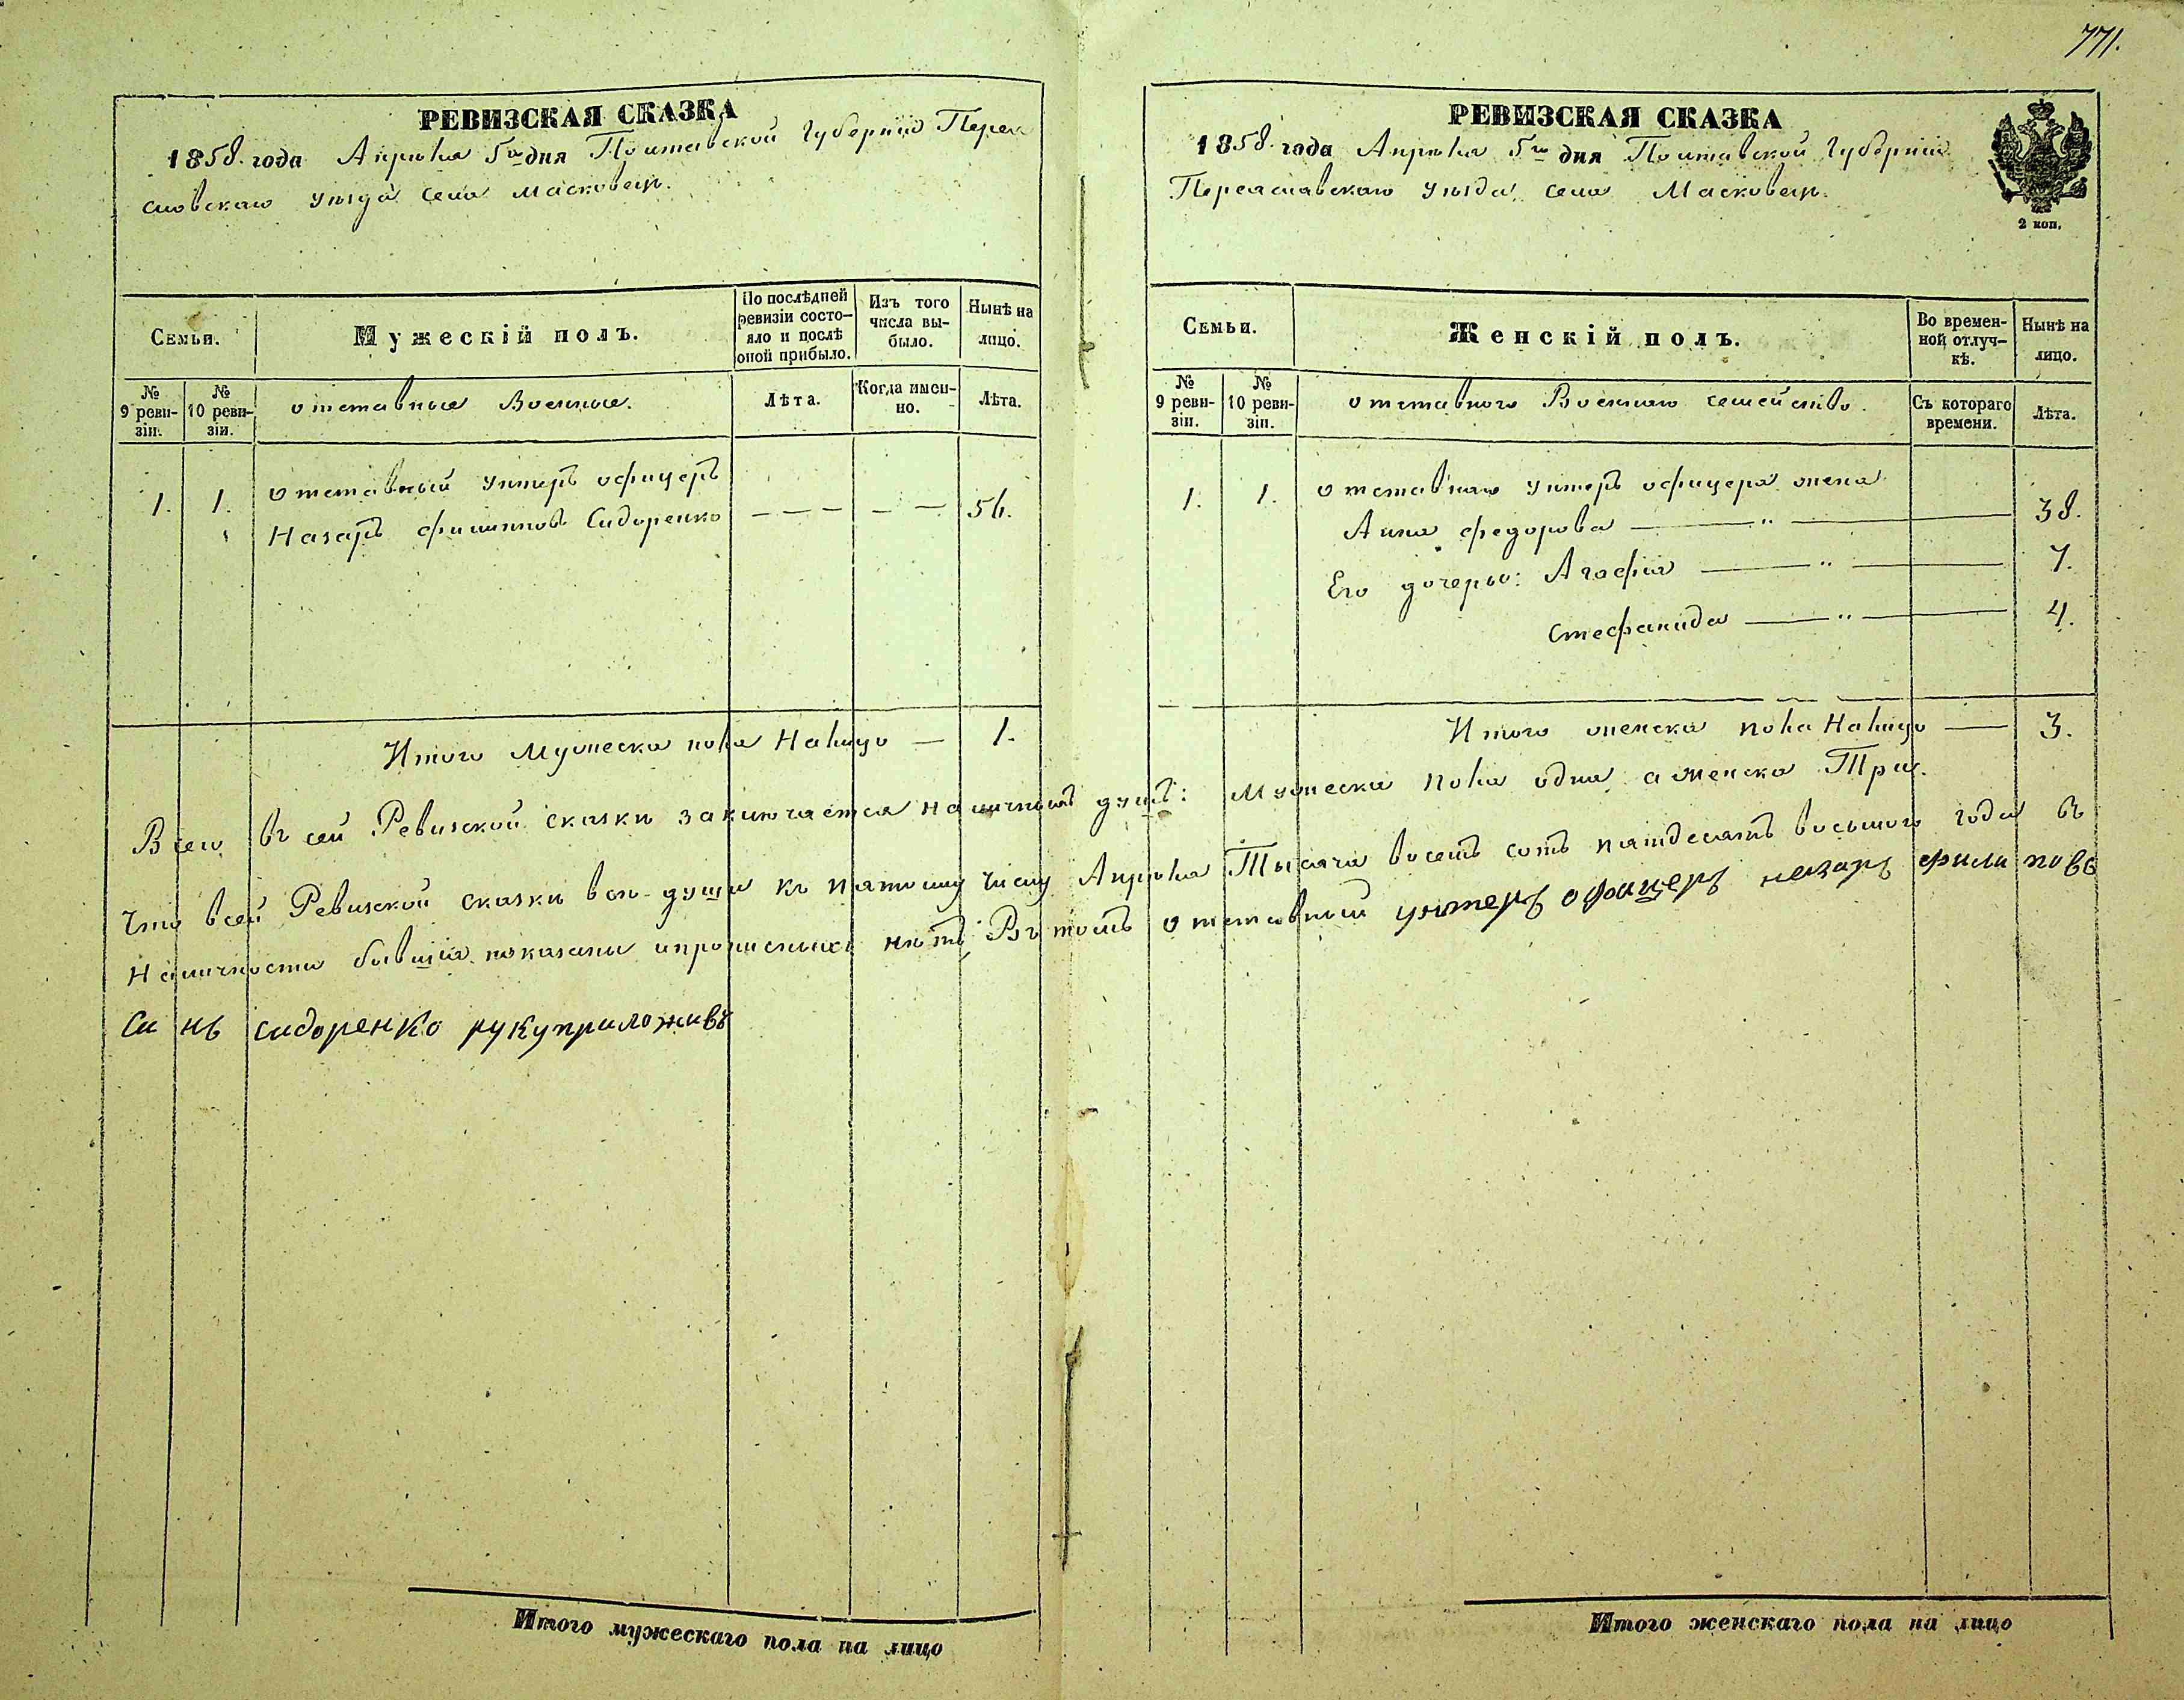 771.
РЕВИЗСКАЯ СКАЗКА
1858. года Апрѣля 5го дня Полтавской Губерніи Перея
словскаго уѣзда села Масковецъ.
Семьи.
Мужескій полъ.
По послѣдней ревизіи состо-
яло и послѣ оной прибыло.
Изъ того числа вы-
было.
Нынѣ на лицо.
№ 9 реви-
зіи.
№ 10 реви-
зіи.
отставные Военные.
Лѣта.
Когда имен-
но.
Лѣта.
1. 1. отставный унтеръ офицеръ
Назаръ филиповъ Сидоренко — — — — — 56.
Итого мужеска пола Налицо — 1.
РЕВИЗСКАЯ СКАЗКА
1858. года Апрѣля 5го дня Полтавской Губерніи
Переяславскаго уѣзда, села Масковецъ.
2 коп.
Семьи.
Женскій полъ.
Во времен-
ной отлуч-
кѣ.
Нынѣ на лицо.
№ 9 реви-
зіи.
№ 10 реви-
зіи.
отставного Военного семейство.
Съ котораго времени.
Лѣта.
1. 1. отставнаго унтеръ офицера жена
Анна федорова — " — 38.
Его дочери: Агафія — " — 7.
Стефанида — " — 4.
Итого женска пола Налицо — 3.
Всего въ сей Ревизской сказкѣ заключается наличныхъ душъ: мужеска пола одна, а женска Три.
Что всей Ревизской сказкѣ всѣ души къ пятому числу Апрѣля Тысяча восемь сотъ пятдесятъ восьмого года въ
Наличности бывшія показаны и прописныхъ нѣтъ, Въ томъ отставный унтеръ офицеръ назаръ филиповъ
Синъ сидоренко рукуприложивъ
Итого мужескаго пола на лицо
Итого женскаго пола на лицо